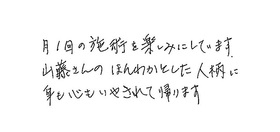 月1回の施術を楽しみにしています。
山藤さんのほんわかとした人柄に
身も心もいやされて帰ります